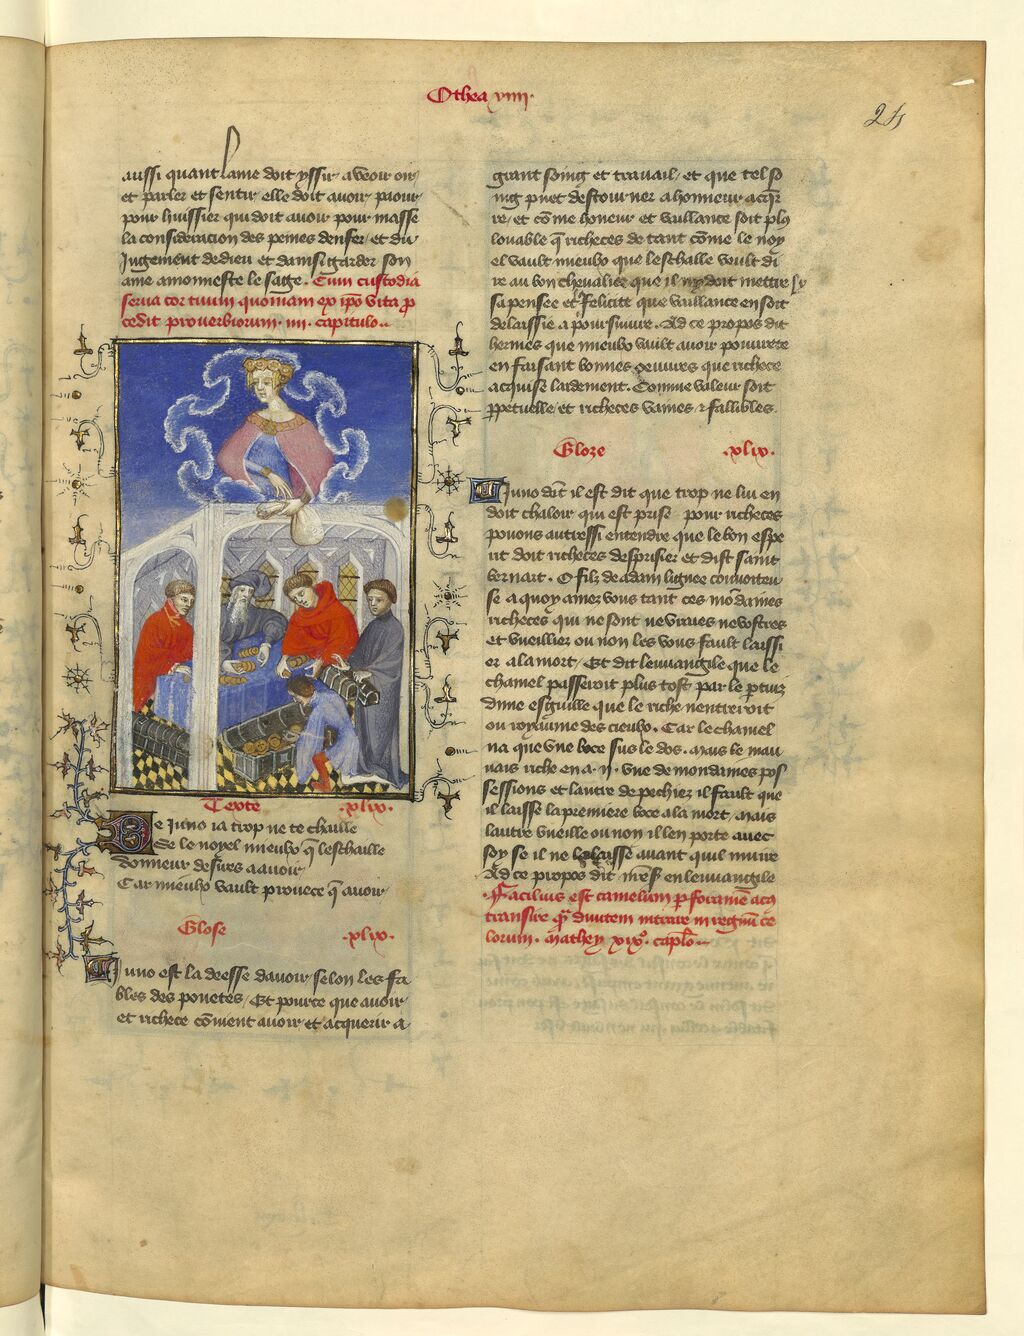 Othea viiii.
24
aussi quant lame doit yssir a veoir oir
et parler et sentir elle doit avoir paour
pour huissier qui doit avoir pour masse
la consideracion des peines denfer et du
Jugement de dieu et dainsi garder son
ame amonneste le sage. Cum custodia
serva cor tuum quoniam ex ipo vita p
cedit proverbiorum iiii. capitulo
Texte .xlix.
De Juno ia trop ne te chaille
se le noyel mieulx q leschaille
donneur desires a avoir
Car mieulx vault prouece q avoir
Glose .xlix.
Juno est la deesse davoir selon les fa
bles des pouetes. Et pource que avoir
et richece couient avoir et acquerir a
grant soing et travail, et que tel so
ing puet destourner a honneur acqr
re, et cōme honeur et vaillance soit pl9
louable q̄ richeces de tant cōme le noy
el vault mieulx que leschalle veult di
re au bon chevalier que il ny doit mettre
sa pensee et felicite que vaillance en soit
delaissie a poursuivre. Ad ce propos dit
hermes que mieulx vault avoir pouvrete
en faisant bonnes oeuvres que richece
acquise lardement. Comme valeur soit
ppetuelle et richeces vaines & faillibles.
Gloze .xlix.
Juno dōt il est dit que trop ne lui en
doit chaloir qui est prise pour richeces
povons autressi entendre que le bon espe
rit doit richeces desprisier et dist saint
bernart. O filz de adam lignee convoiteu
se a quoy amez vous tant ces mōdaines
richeces qui ne sont ne vraies ne vostres
et vueillier ou non les vous fault laissi
er a la mort. Et dit leuvangile que le
chamel passeroit plus tost par le ptuiz
dune esguille que le riche nentreroit
ou royaume des cieulx. Car le chamel
na que une boce sus le dos. mais le mau
vais riche en a .ii. une de mondaines pos
sessions et lautre de pechez il fault que
il laisse la premiere boce a la mort, mais
lautre vueille ou non il len porte avec
soy se il ne la laisse avant quil muire
Ad ce propos dit nre sr en leuvangile
Facilius est camelum p foramē acus
transire q divitem intrare in regnū ce
lorum. Mathey xix°. caplo